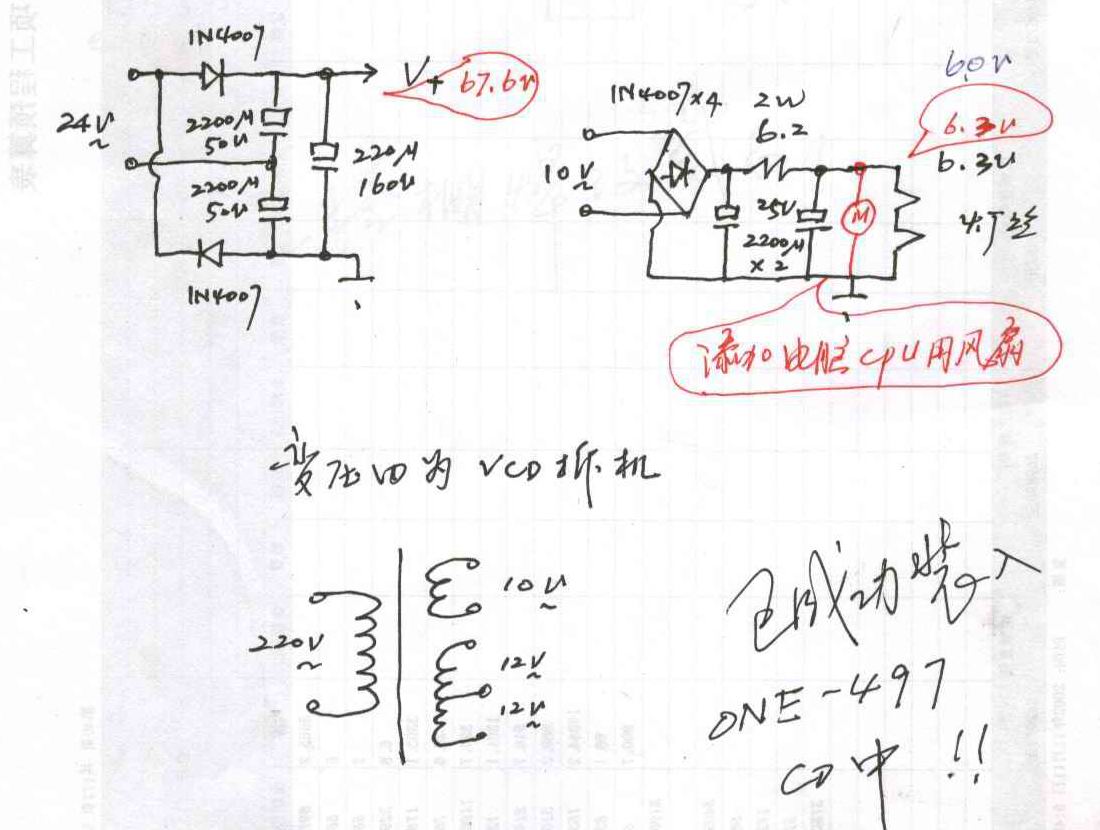 1N4007
V+ 67.6V
24V~
2200μ
50V
2200μ
50V
220μ
160V
1N4007
1N4007×4
2W
6.2
10V~
25V
2200μ
×2
M
6.0V
6.3V
6.3V
灯丝
添加电脑CPU用风扇
变压四为VCD拆机
220V~
10V~
12V~
12V~
已成功装入
ONE-497
CD中!!